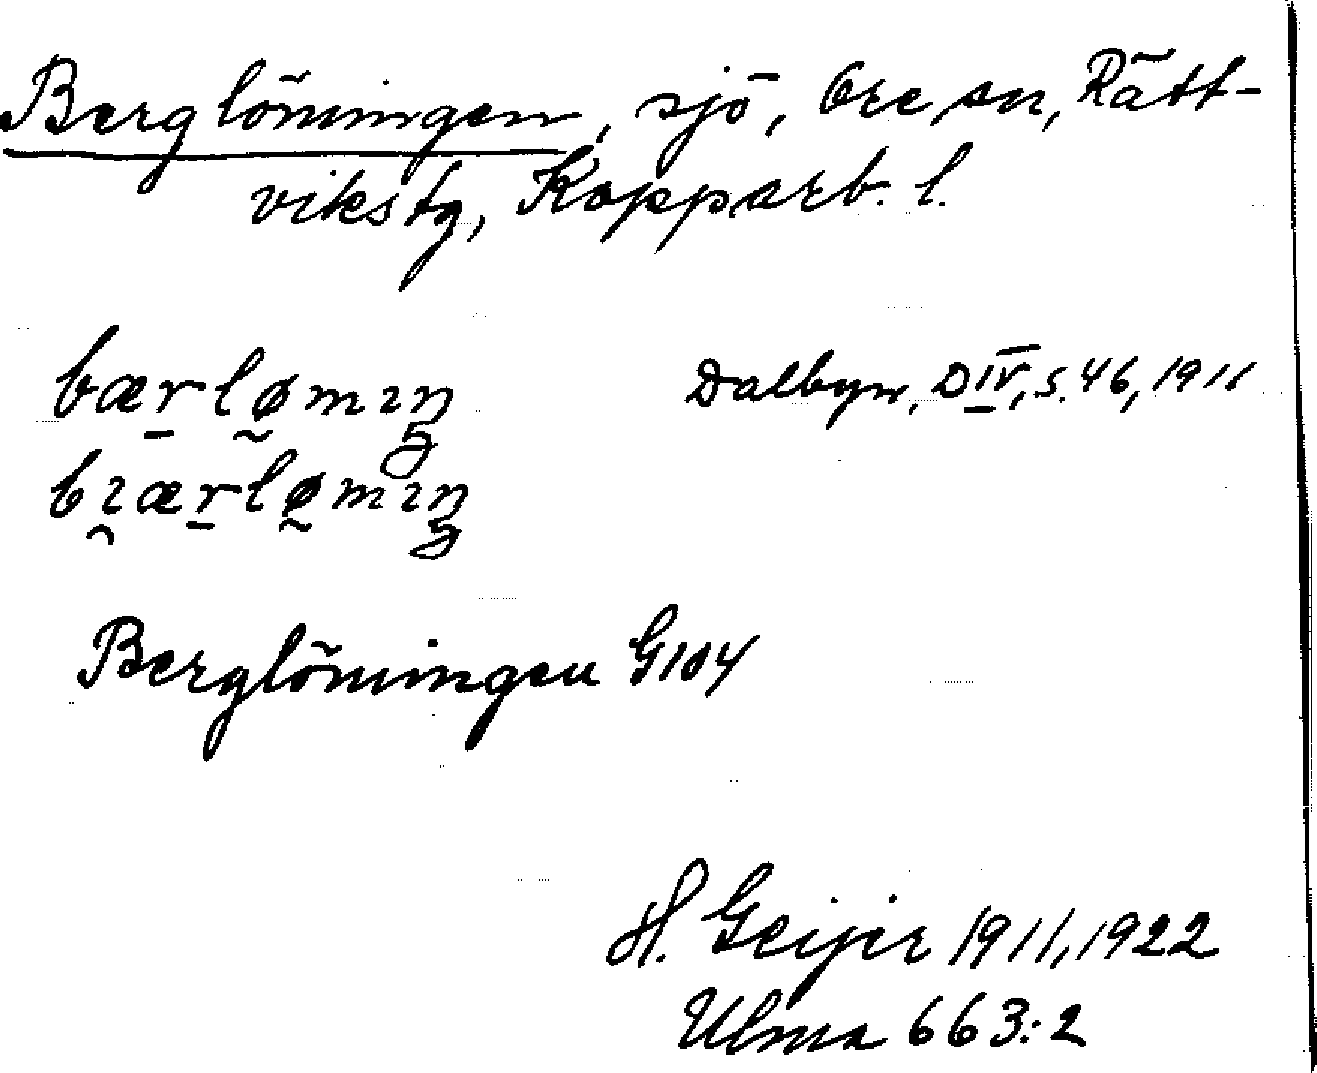 Berglöningen, sjö, Ore sn, Rätt-
vikstg, Kopparb. l.
bærlømıŋ Dalbyn, D IV, s. 46, 1911
bıærlømıŋ
Berglöningen G104
H. Geijer 1911, 1922
Ulma 663:2